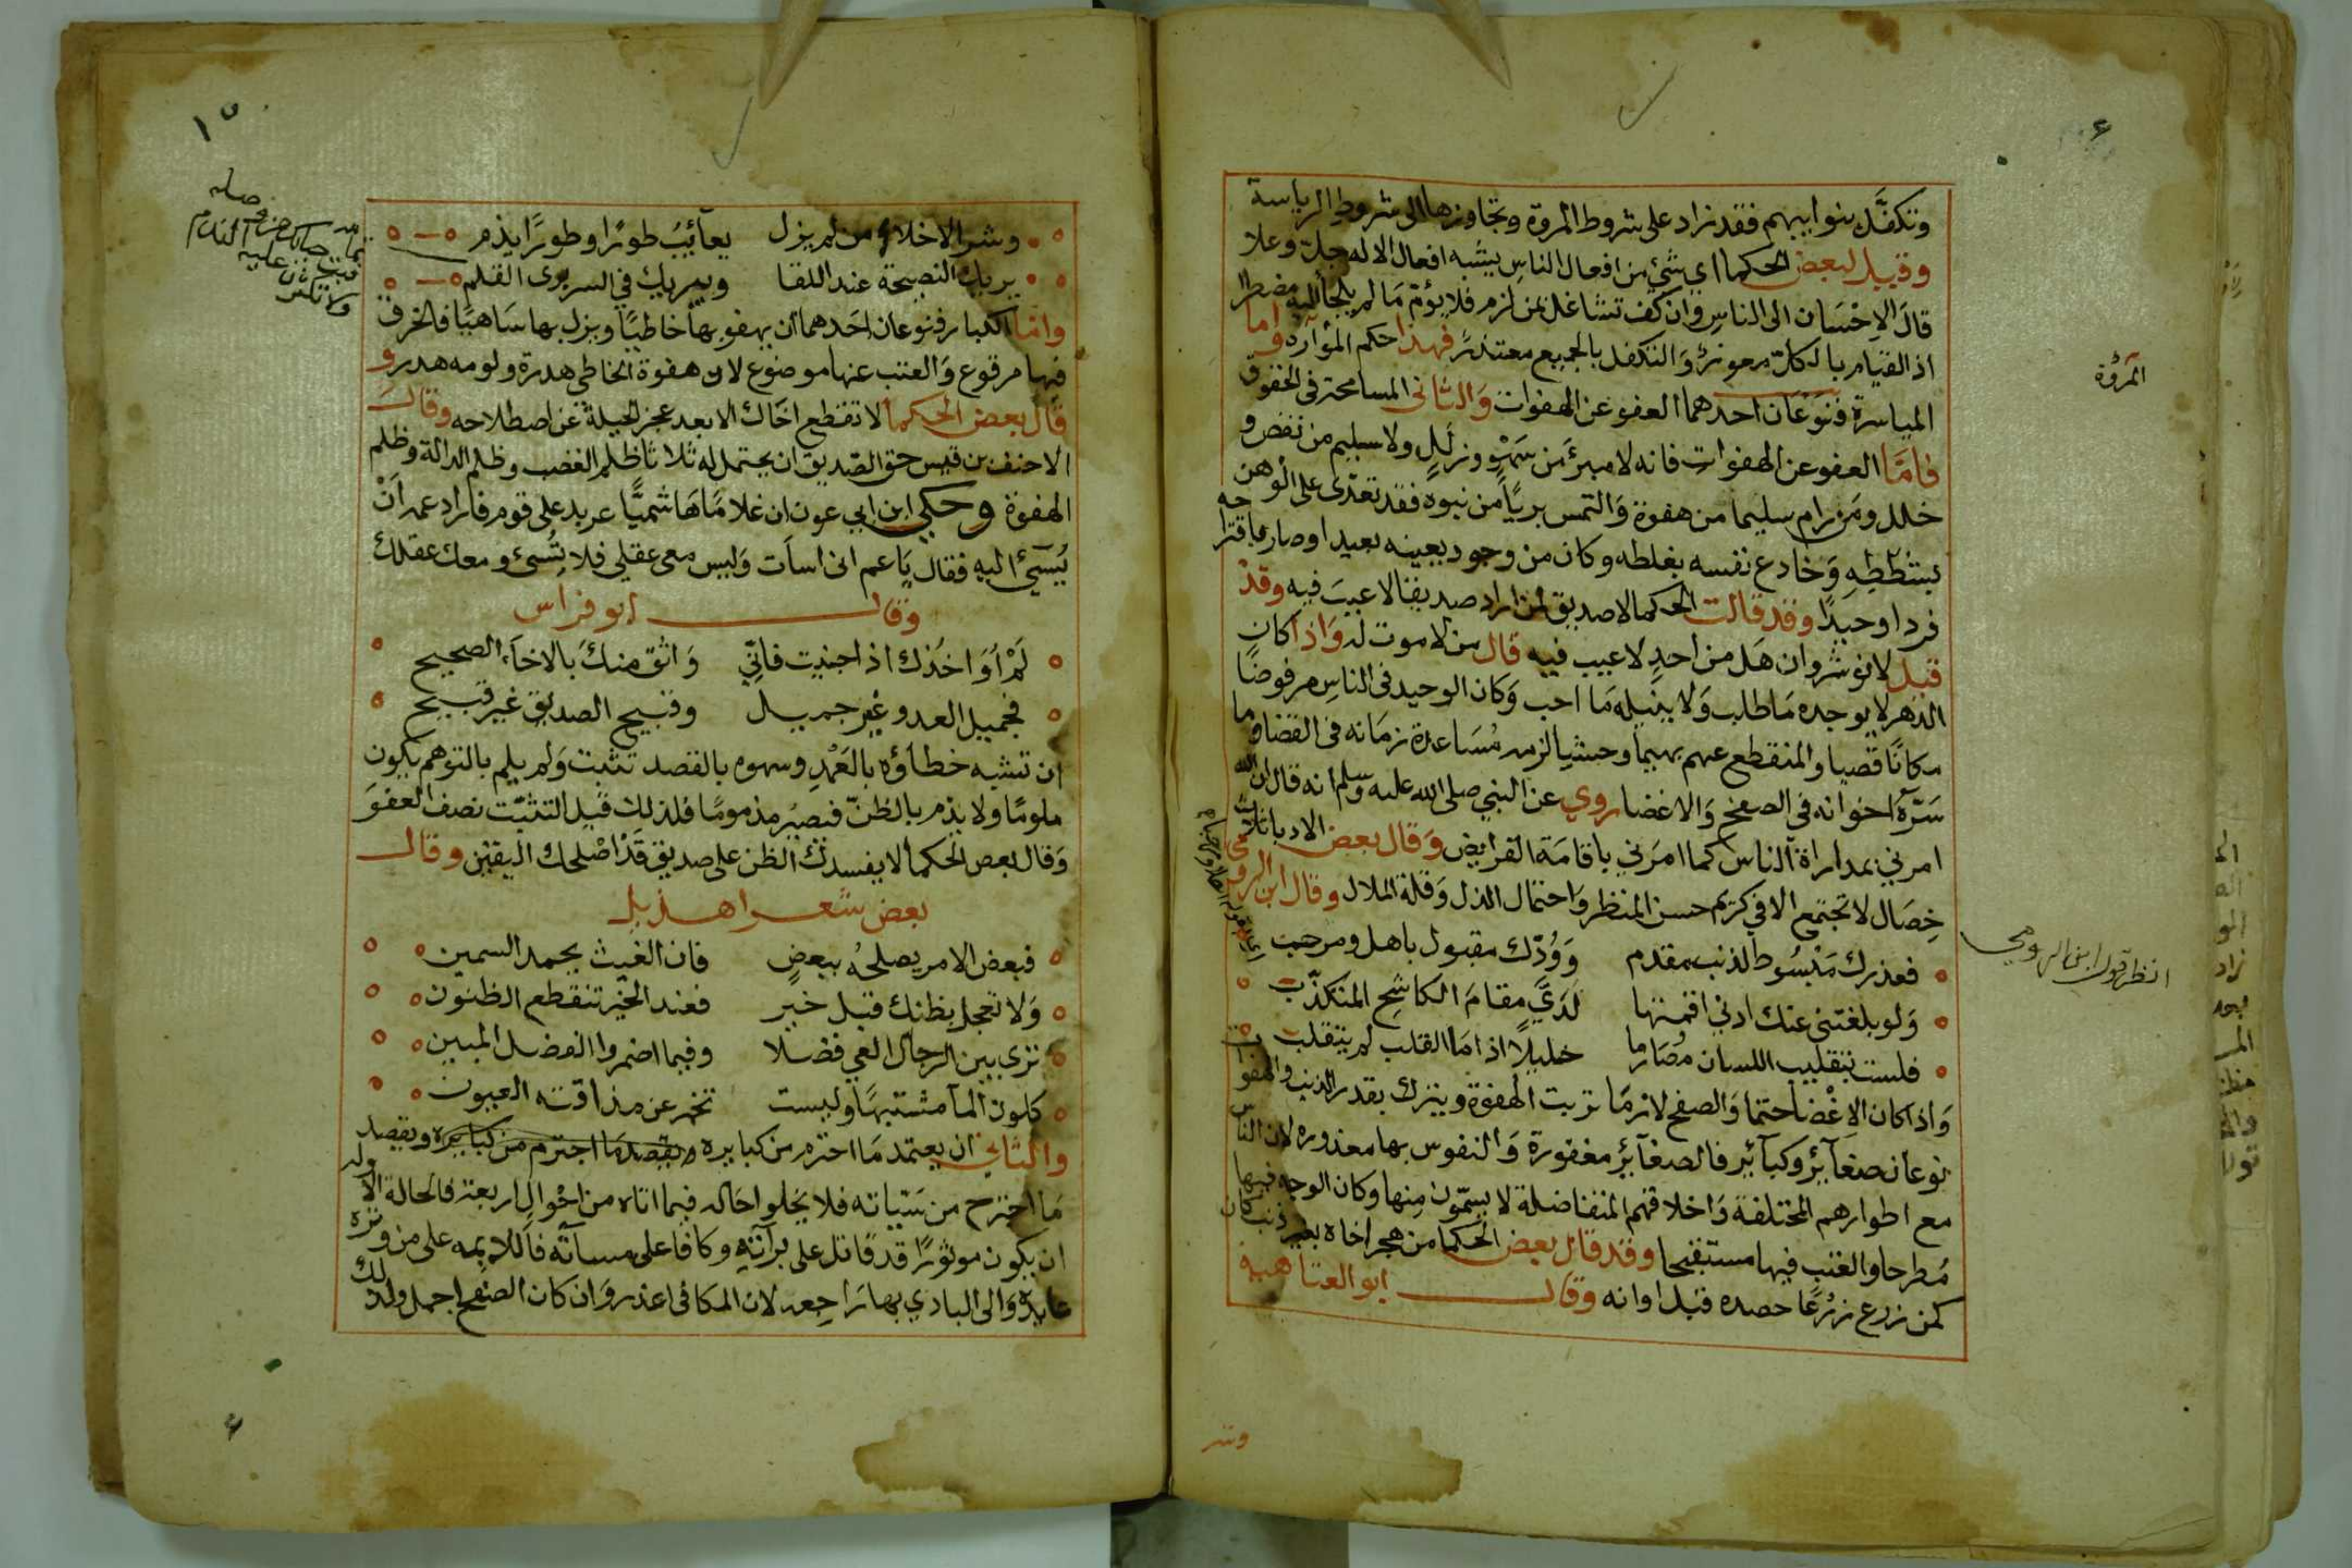 وتكفَّل بنوايبهم فقد زاد على شروط المروة وتجاوزها الى شروط الرياسة
وقيل لبعض الحكما اي شيء من افعال الناس يشبه افعال الاله جل وعلا
قال الاحسان الى الناس وان كف تشاغل بمن لزم فلا يؤم ما لم يلجا اليه مضطر
اذ القيام بالكل معوز والتكفل بالجميع متعذر فهذا حكم المؤازرة واما
المياسرة فنوعان احدهما العفو عن الهفوات والثاني المسامحة في الحقوق
فاما العفو عن الهفوات فانه لا مبرئ من سهو وزلل ولا سليم من نقص و
خلل ومن رام سليما من هفوة والتمس بريا من نبوه فقد تعدى على الوهن
بشططه وخادع نفسه بغلطه وكان من وجود بعينه بعيدا وصار باقتراحه
فردا وحيدا وقد قالت الحكما لا صديق لمن اراد صديقا لا عيب فيه وقد
قيل لانوشروان هل من احد لا عيب فيه قال من لا موت له واذا كان
الدهر لا يوجده ما طلب ولا ينيله ما احب وكان الوحيد في الناس مرفوضا
مكانا قصيا والمنقطع عنهم بهيما وحشيا لزمه مساعدة زمانه في القضا وما
سرة اخوانه في الصفح والاغضا روي عن النبي صلى الله عليه وسلم انه قال ان الله
امرني بمداراة الناس كما امرني باقامة الفرايض وقال بعض الادبا ثلاث
خصال لا تجتمع الا في كريم حسن المنظر واحتمال الذل وقلة الملال وقال ابن الرومي
فعذرك مبسوط لذنب مقدم وودك مقبول باهل ومرحب
ولو بلغتني عنك اذني اقمتها لدي مقام الكاشح المتكذب
فلست بتقليب اللسان مصارما خليلا اذا ما القلب لم يتقلب
واذا كان الاغضا حتما والصفح لازما ترتبت الهفوة ويترك بقدر الذنب والهفوات
نوعان صغاير وكباير فالصغاير مغفورة والنفوس بها معذوره لان الناس
مع اطوارهم المختلفة واخلاقهم المتفاضلة لا يسلمون منها وكان الوجه فيها
مطرحا والعتب فيها مستقبحا وقد قال بعض الحكما من هجر اخاه بغير ذنب كان
كمن زرع زرعا حصده قبل اوانه وقال ابو العتاهية
المروة
انظر قول ابن الرومي
وشر
وشر الاخلاء من لم يزل يعاتب طورا وطورا يذم
يريك النصيحة عند اللقا ويبريك في السر بري القلم
واما الكبار فنوعان احدهما ان يهفو بها خاطيا ويزل بها ساهيا فالحرف
فيها مرفوع والعتب عنها موضوع لان هفوة الخاطي هدرة ولومه هدر و
قال بعض الحكما لا تقطع اخاك الا بعد عجز الحيلة عن اصطلاحه وقال
الاحنف بن قيس حق الصديق ان يحتمل له ثلاثا ظلم الغضب وظلم الدالة وظلم
الهفوة وحكى ابن ابي عون ان غلاما هاشميا عربد على قوم فاراد عمه ان
يسيء اليه فقال يا عم اني اسات وليس معي عقلي فلا تسئ ومعك عقلك
وقال ابو فراس
لم اواخذك اذ اجنيت فاني واثق منك بالاخاء الصحيح
فجميل العدو غير جميل وقبيح الصديق غير قبيح
ان تشبه خطاؤه بالعمد وسهوه بالقصد تثبت ولم يلم بالتوهم يكون
ملوما ولا يذم بالظن فيصير مذموما فلذلك قيل التثبت نصف العفو
وقال بعض الحكما لا يفسدك الظن على صديق قد اصلحك اليقين وقال
بعض شعرا هذيل
فبعض الامر يصلحه ببعض فان الغيث يحمد السمين
ولا تعجل بظنك قبل خبر فعند الخير تنقطع الظنون
ترى بين الرجال العي فضلا وفيما اضمروا الفضل المبين
كلون الما مشتبها وليست تخبر عن مذاقته العيون
والثاني ان يعتمد ما اجترم من كبايره ويقصد ما اجترم من كبايره ويقصد
ما اجترح من سيياته فلا يخلوا حاله فيما اتاه من احوال اربعة فالحالة الاوله
ان يكون موتورا قد قاتل على براته وكافا على مسآته فاللايمه على من وتره
عايدة والى البادي بها راجعه لان المكافى اعذر وان كان الصفح اجمل ولذلك